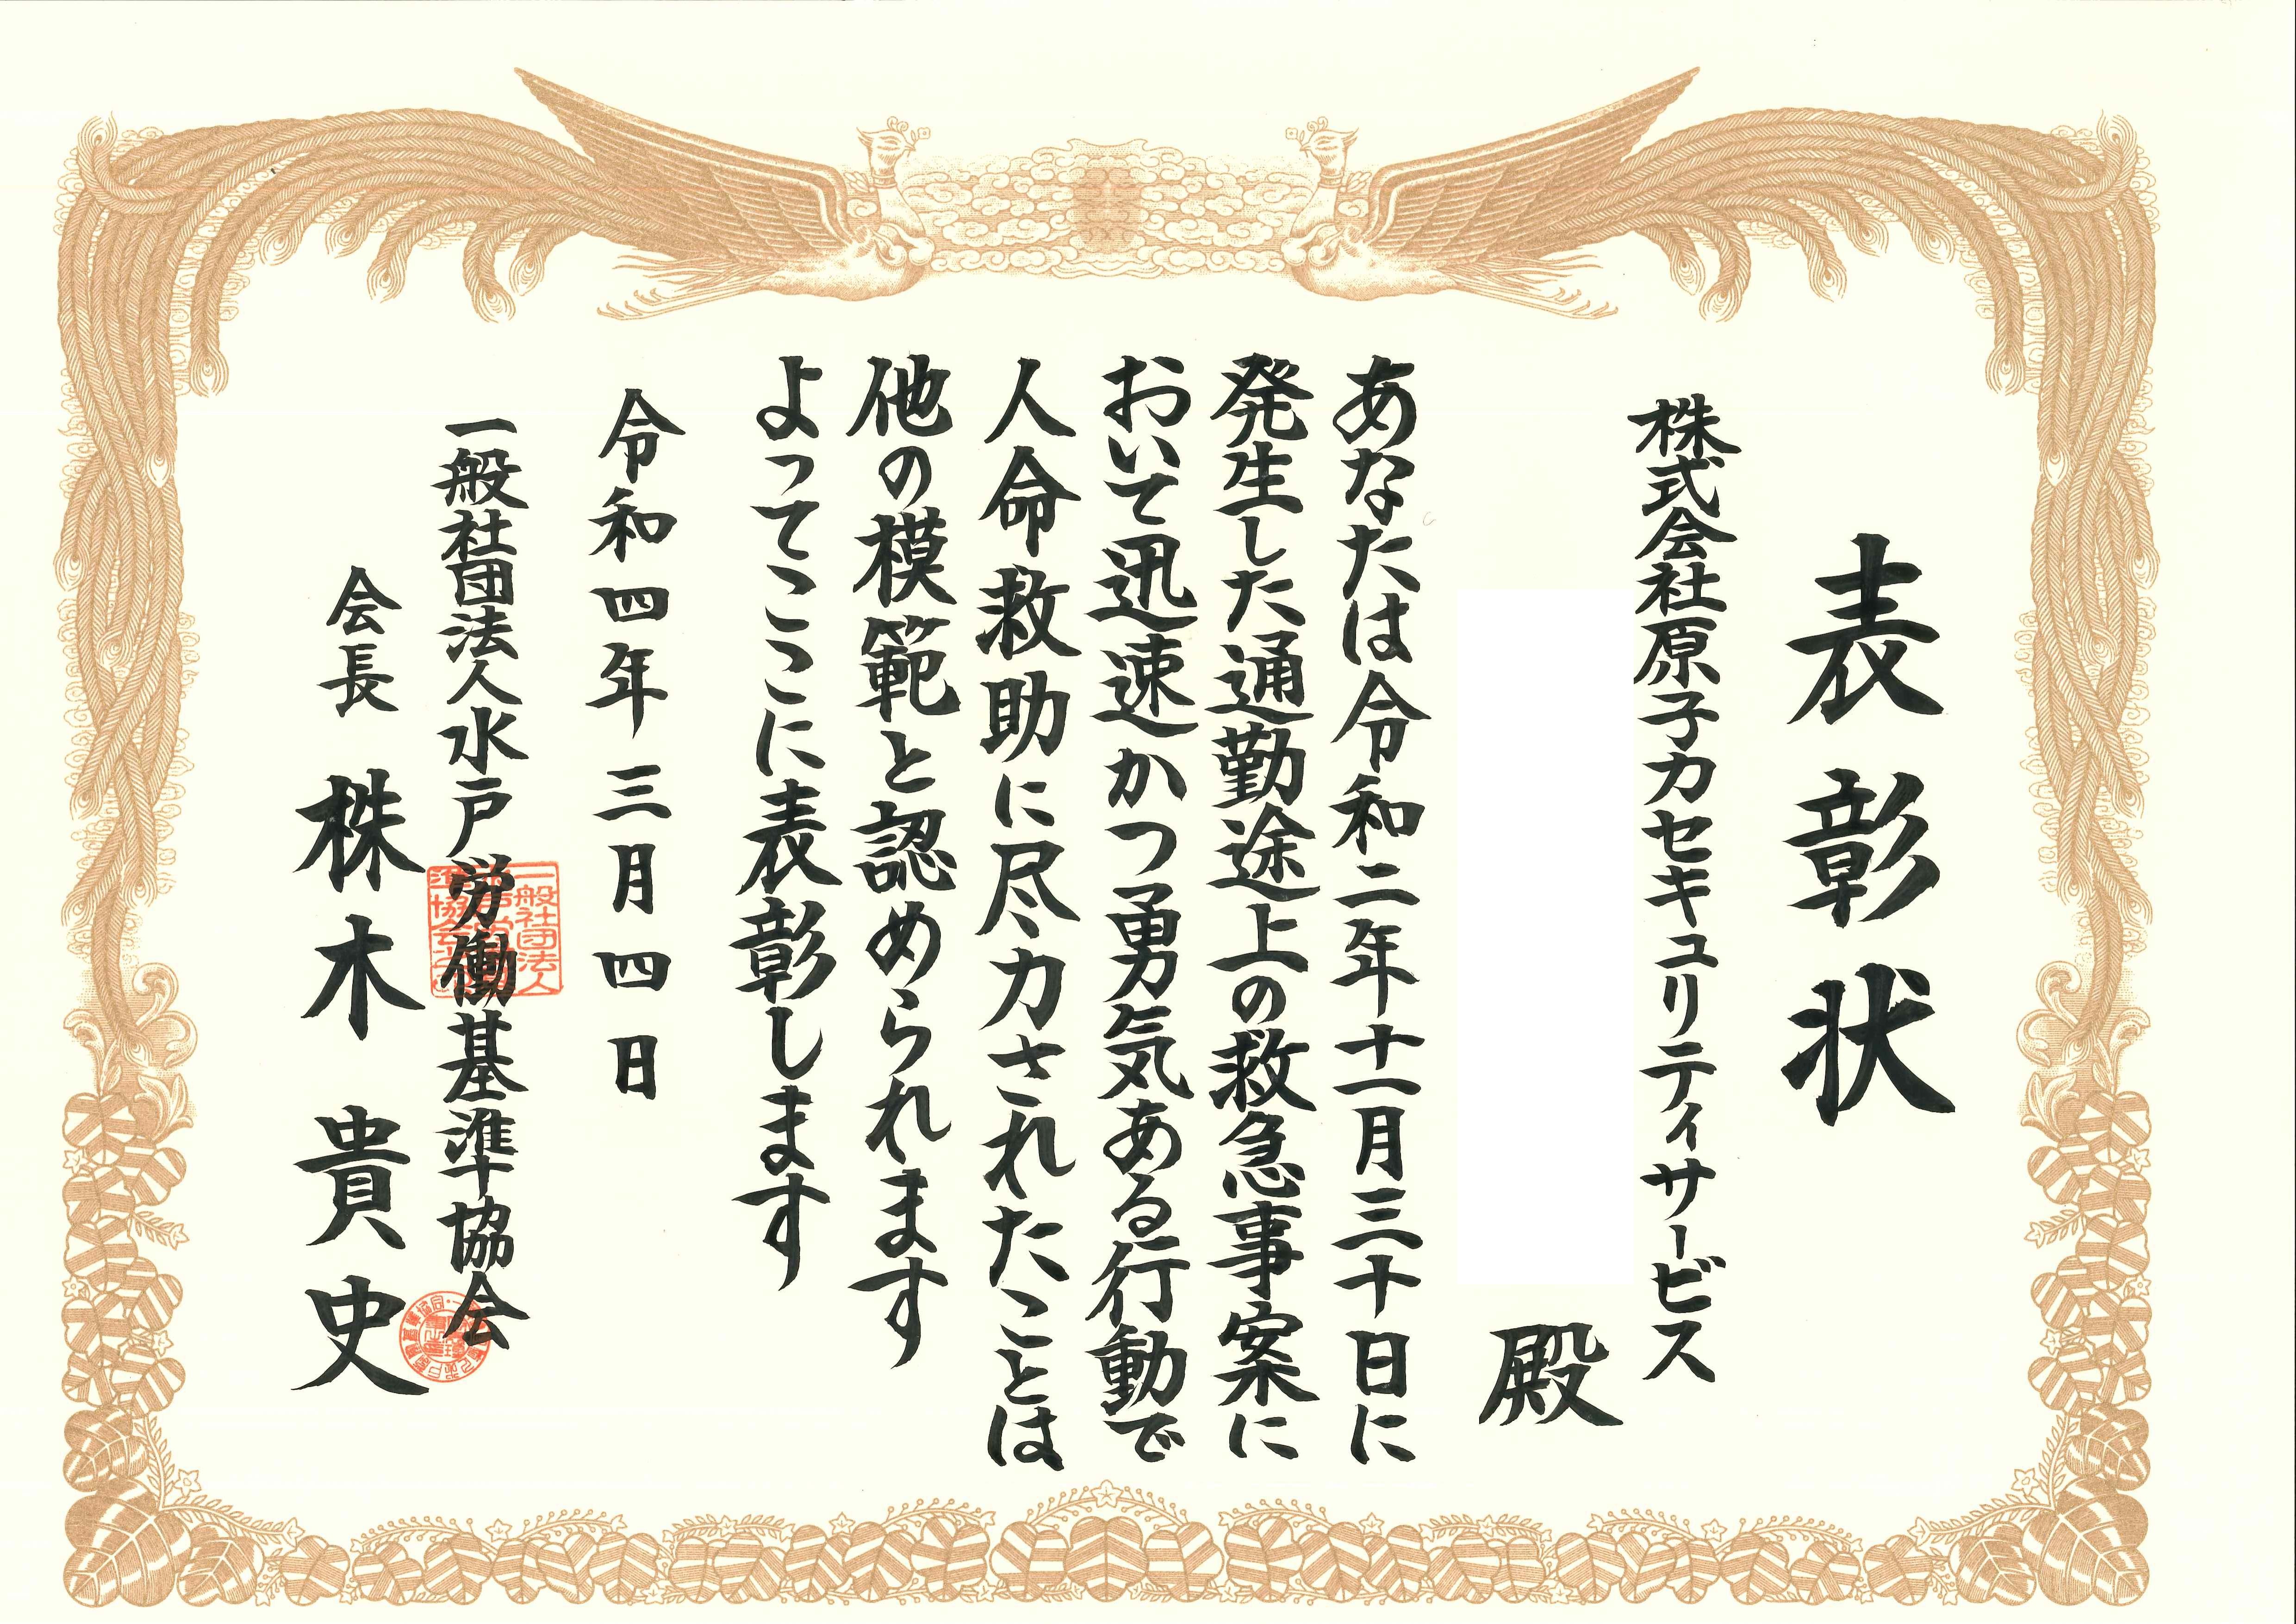 表彰状
株式会社原子力セキュリティサービス
殿
あなたは令和二年十一月三十日に
発生した通勤途上の救急事案に
おいて迅速かつ勇気ある行動で
人命救助に尽力されたことは
他の模範と認められます
よってここに表彰します
令和四年三月四日
一般社団法人水戸労働基準協会
会長 株木貴史
一般社団法人